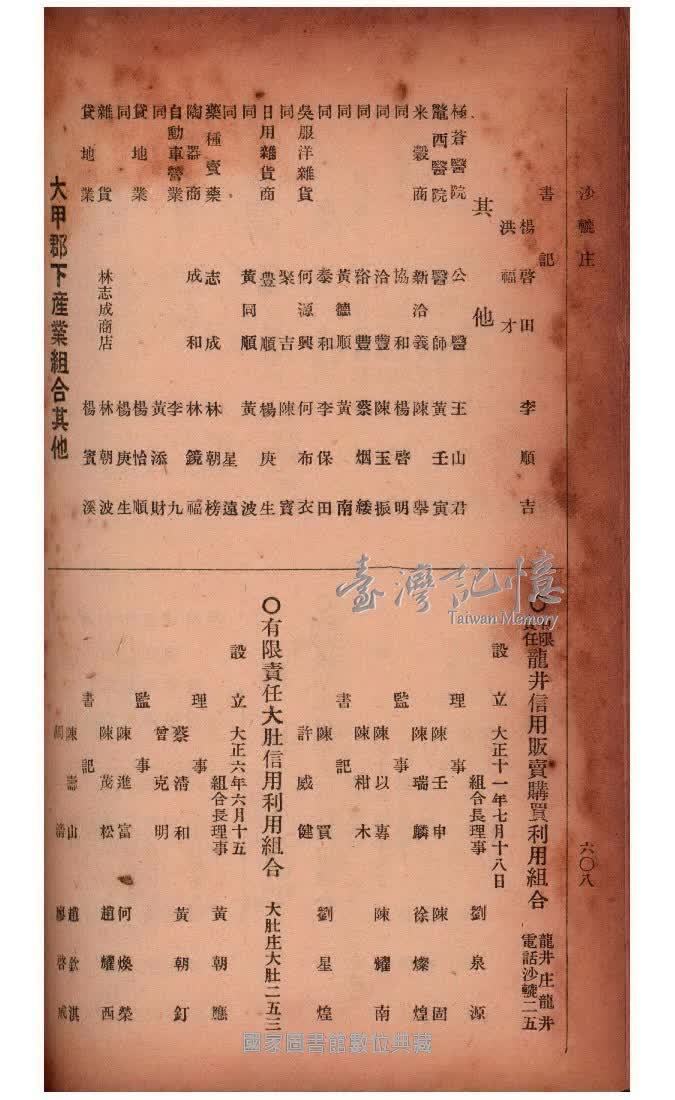 沙轆庄
六〇八
書記
楊啓田 李順吉
洪福才
其他
極蒼醫院 公醫 王山君
鼇西醫院 醫師 黃壬寅
米穀商 新洽義 陳舉
同 協和 楊啓明
同 洽豐 陳玉振
同 裕豐 蔡烟綏
同 黃德順 黃南
同 泰和 李保田
吳服洋雜貨 何源興 何布衣
同 聚吉 陳寶
日用雜貨商 豐順 楊庚生
同 黃同順 黃波
同 星遠
藥種賣藥 志成 林朝榜
陶器商 成和 林鏡福
自動車營業 李九
同 黃添財
貸地業 楊怡順
同 楊庚生
雜貨 林志成商店 林朝波
貸地業 楊賓溪
大甲郡下産業組合其他
〇有限責任龍井信用販賣購買利用組合 龍井庄龍井 電話沙轆二五
設立 大正十一年七月十八日
組合長理事 劉泉源
理事
陳壬申 陳固
陳瑞麟 徐燦煌
監事
陳以專 陳耀南
陳柑木
書記
陳買 劉星煌
許威健
〇有限責任大肚信用利用組合 大肚庄大肚二五三
設立 大正六年六月十五
組合長理事 黃朝應
理事
蔡清和 黃朝釘
曾克明
監事
陳進富 何煥榮
陳茂松 趙耀西
書記
陳壽山 趙欽淇
廖啓成
臺灣記憶
Taiwan Memory
國家圖書館數位典藏